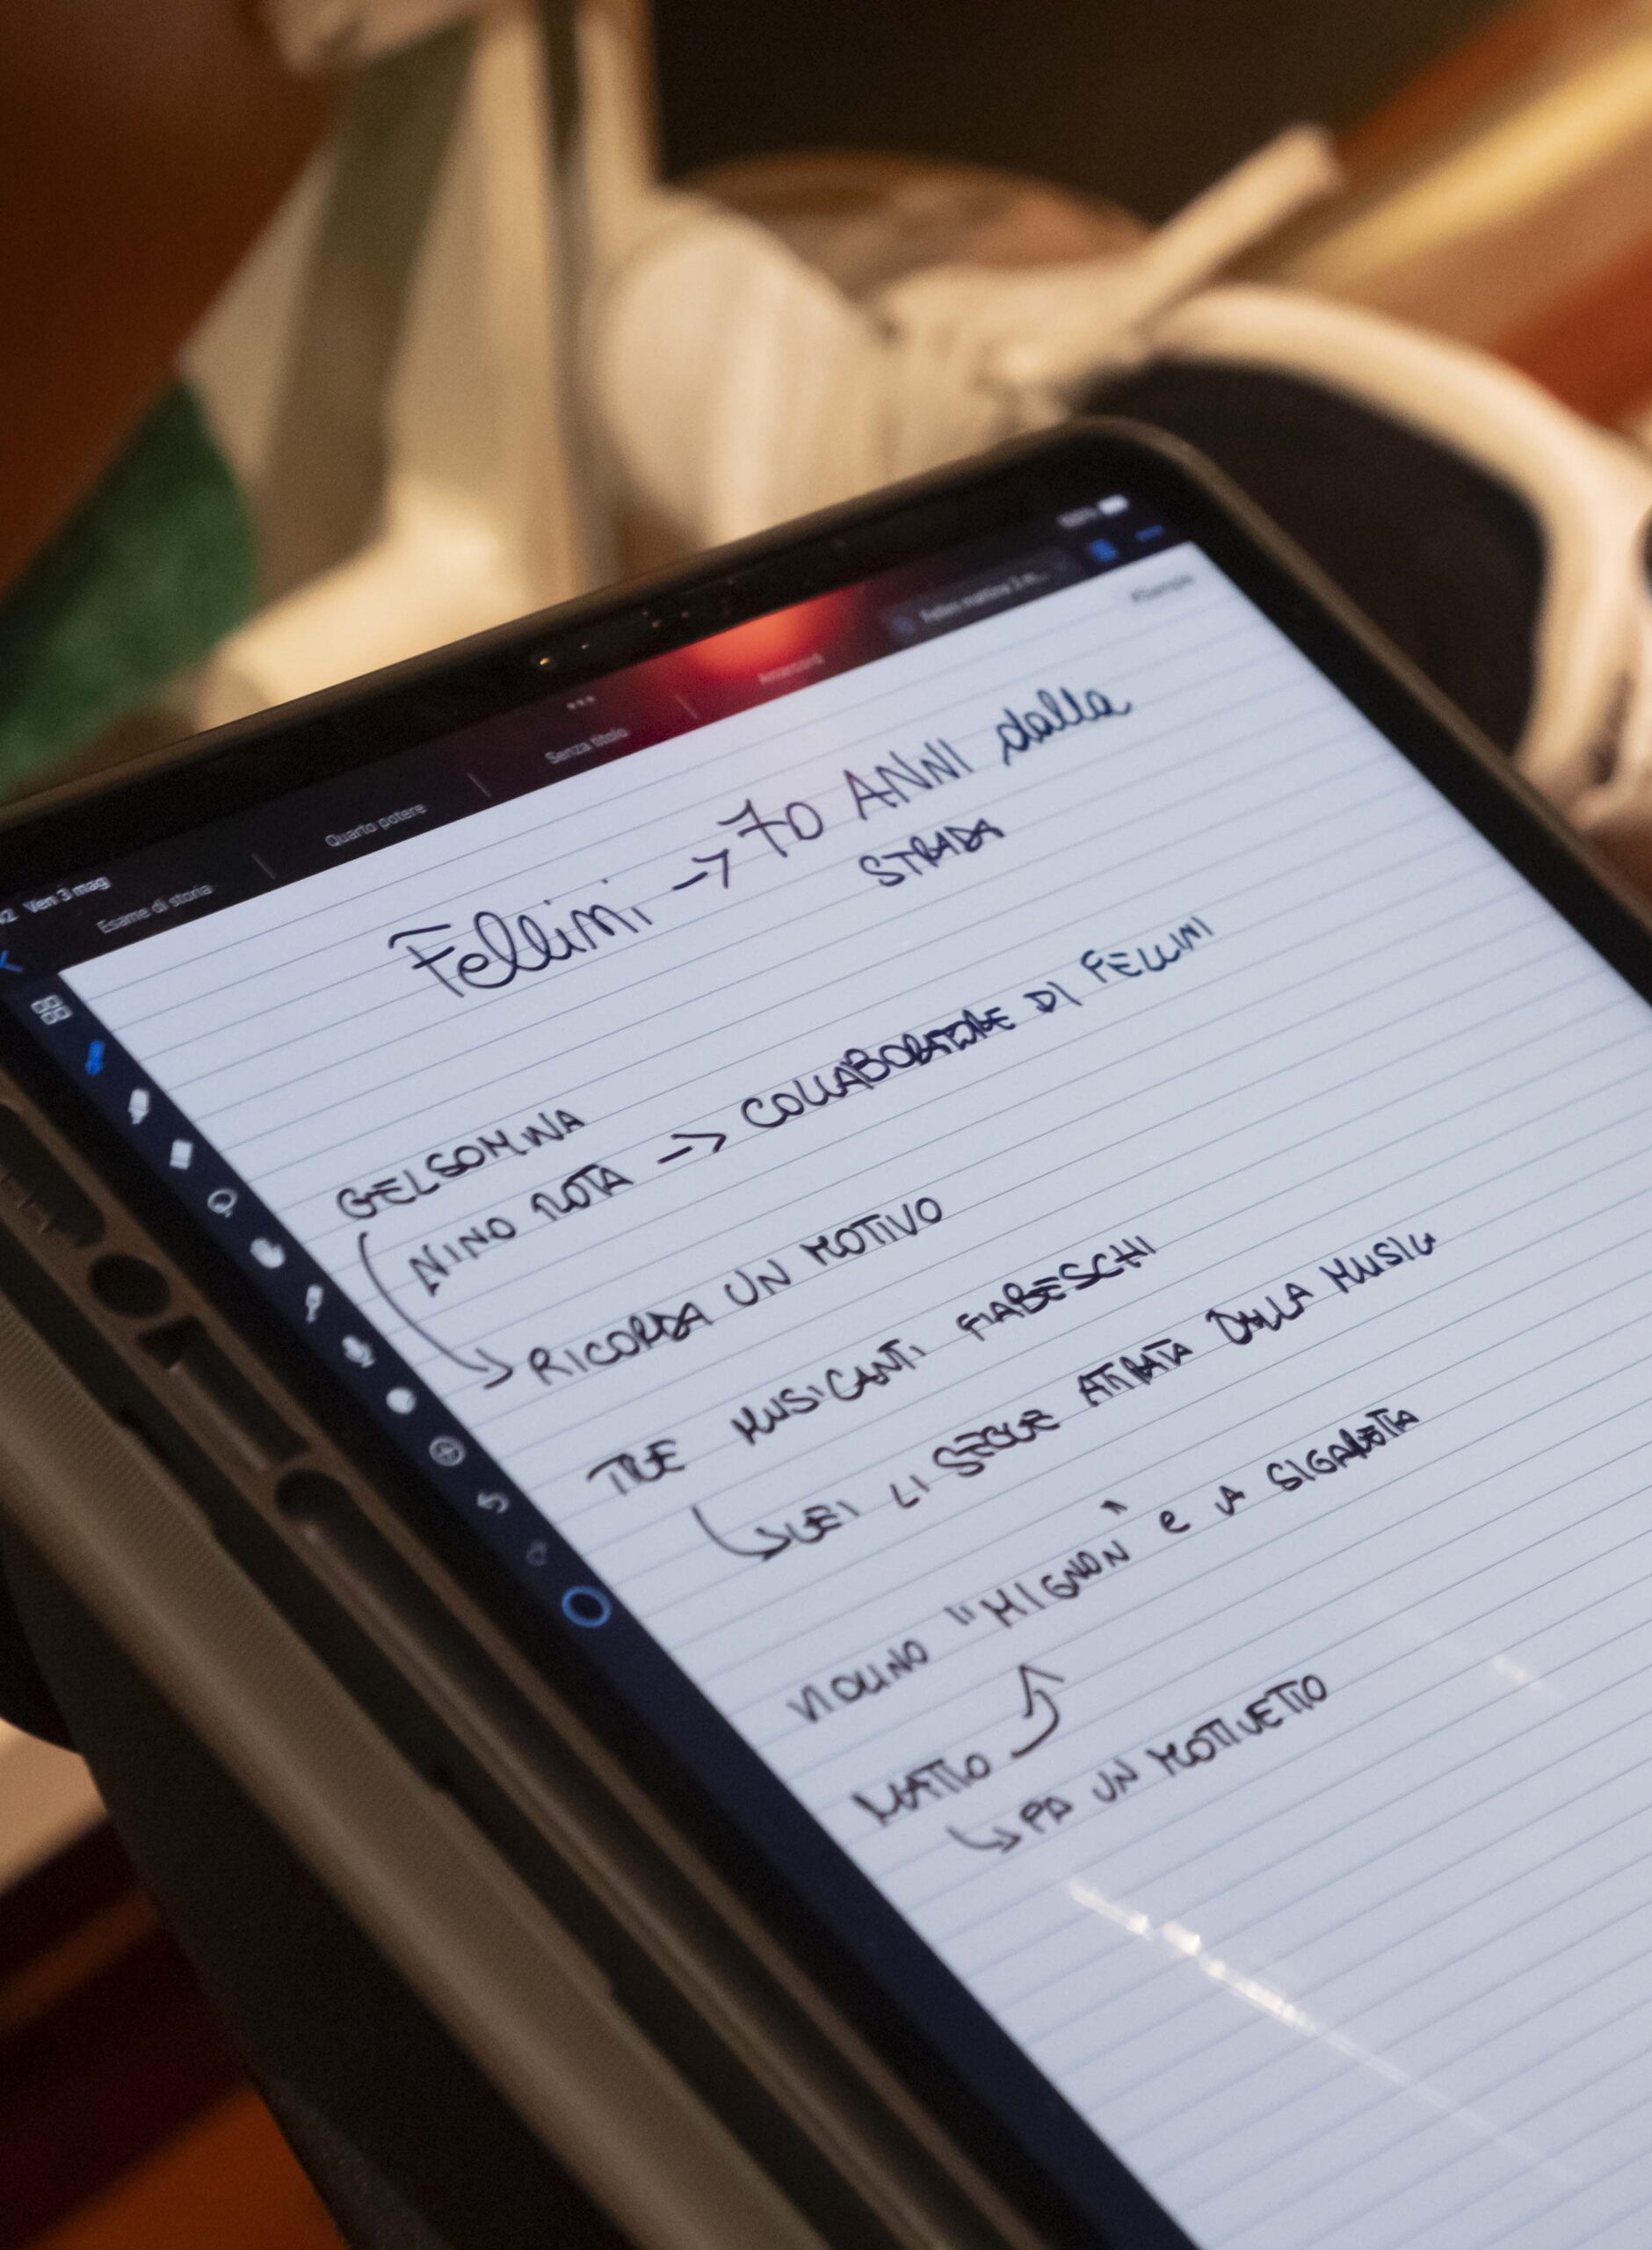 Ven 3 mag
Esame di storia
Quarto potere
Senza titolo
Fellini -> 70 ANNI dalla
STRADA
GELSOMINA
NINO ROTA -> COLLABORATORE DI FELLINI
RICORDA UN MOTIVO
TRE MUSICANTI FIABESCHI
LEI LI SEGUE ATTRATA DALLA MUSICA
VIOLINO "MIGNON" e LA SIGARETTA
MATTO
FA UN MOTIVETTO